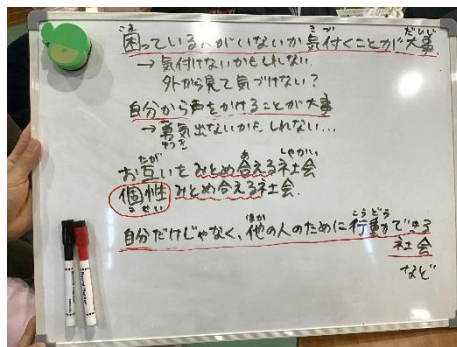 困っている人がいないか気付くことが大事
→気付けないかもしれない
外から見て気づけない?
自分から声をかけることが大事
→勇気出ないかもしれない…
お互いをみとめ合える社会
個性みとめ合える社会
自分だけじゃなく、他の人のために行動できる
社会
など